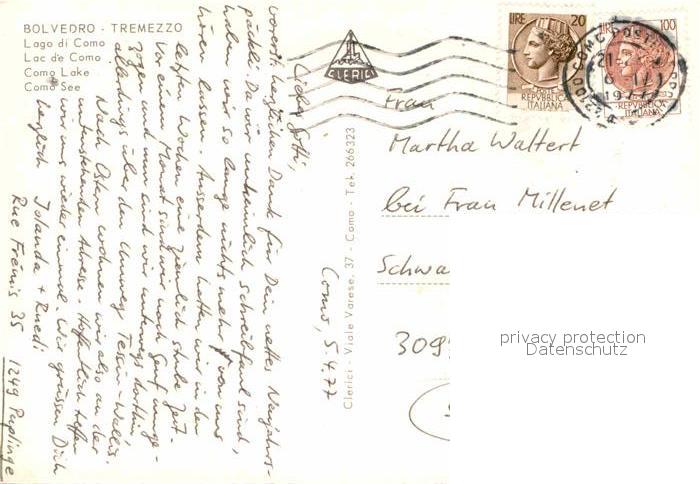 BOLVEDRO - TREMEZZO
Lago di Como
Lac de Como
Como Lake
Como See
Como, 5.4.77
vorerst herzlichen Dank für Dein nettes Neujahrs-
päckli. Da wir unheimlich schreibfaul sind,
haben wir so lange nichts mehr von uns
hören lassen. Ausserdem hatten wir in den
letzten Wochen eine ziemlich strube Zeit.
Vor einem Monat sind wir nach Genf umge-
zogen und nun sind wir unterwegs dorthin,
allerdings über den Umweg Tessin-Wallis.
Nach Ostern wohnen wir also an der
untenstehenden Adresse. Hoffentlich treffen
wir uns wieder einmal. Wir grüssen Dich
herzlich Jolanda + Ruedi
Rue 35 1249 Puplinge
CLERICI
Clerici - Viale Varese, 37 - Como - Tel. 266323
LIRE 20
REPVBBLICA
ITALIANA
LIRE 100
REPVBBLICA
ITALIANA
1977
Frau
Martha Waltert
bei Frau Millenet
Schwa
309
privacy protection
Datenschutz